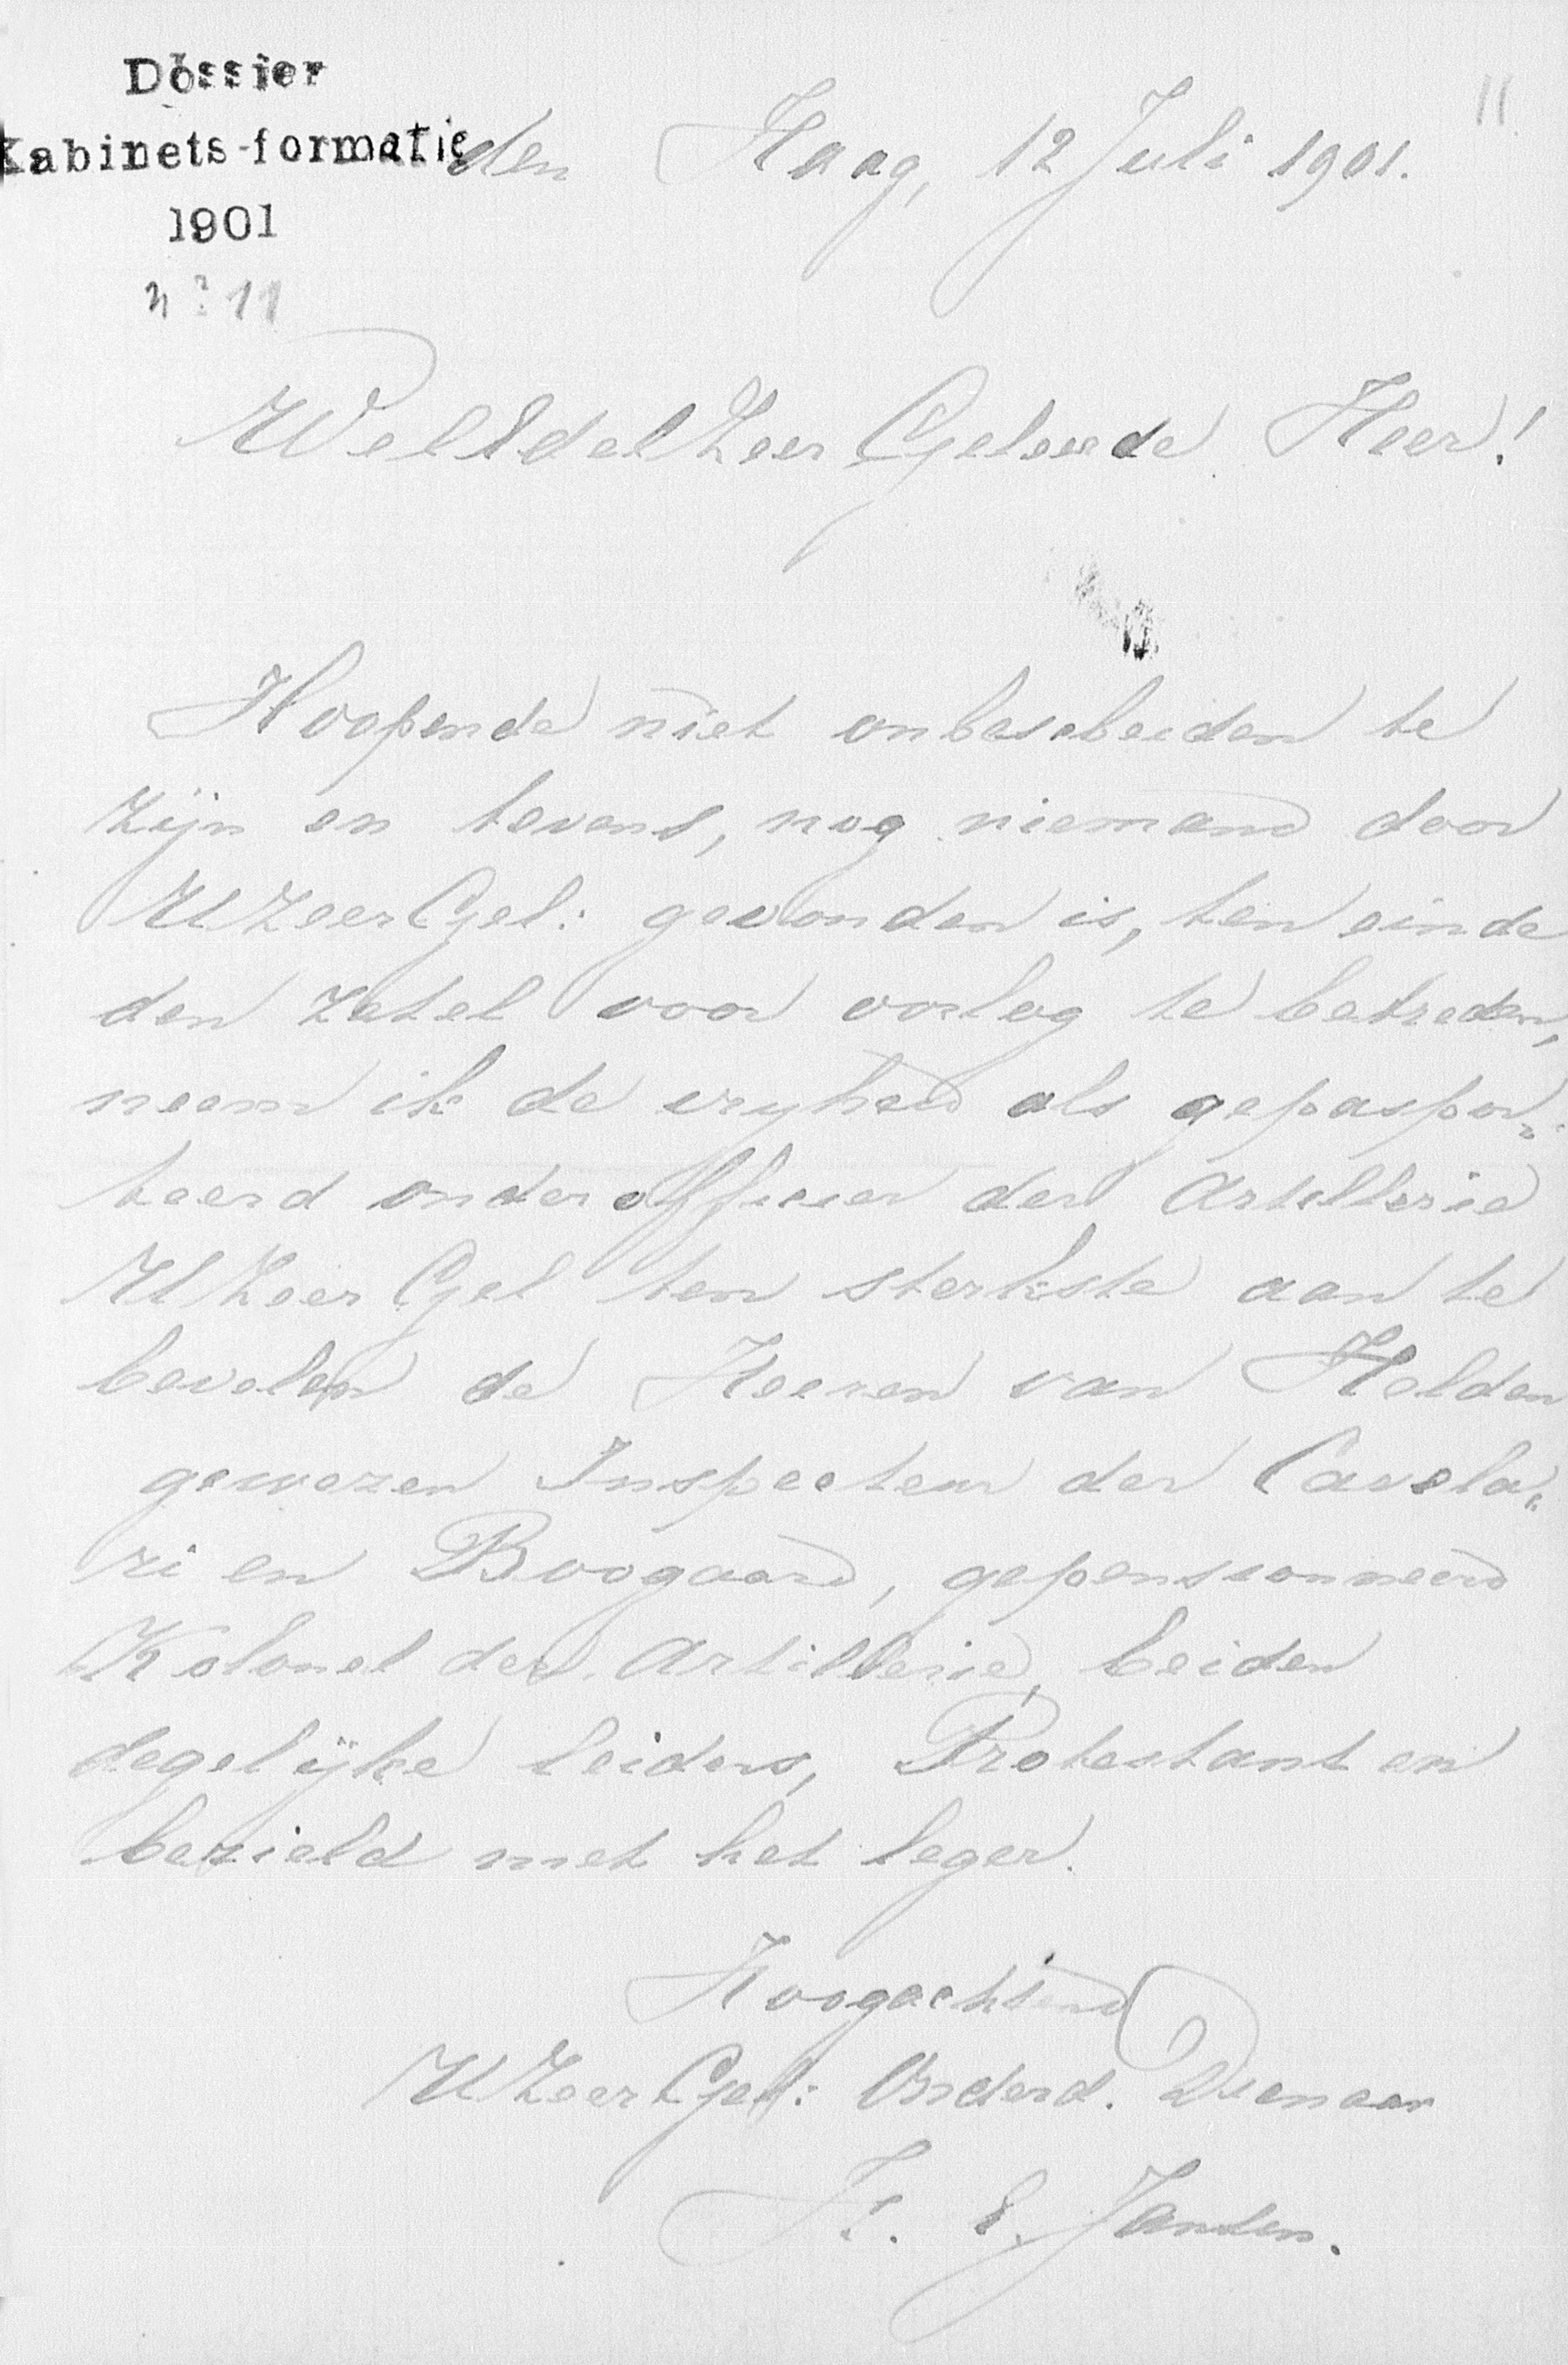 Dossier
Kabinets-formatie
1901
nº 11
11.
den Haag, 12 Juli 1901.
WelEdelZeerGeleerde Heer!
Hoopende niet onbescheiden te
zijn en tevens, nog niemand door
UZeerGel: gevonden is, ten einde
den zetel voor oorlog te betreden,
neem ik de vryheid als gepaspor„
teerd onderofficier der Artillerie
UZeerGel ten sterkste aan te
bevelen de Heeren van Helden
gewezen Inspecteur der Cavela„
ri en Boogaard, gepensionneerd
Kolonel der Artillerie, beiden
degelijke leiders, Protestant en
bezield met het leger.
Hoogachtend
UZeerGel: Onderd. Dienaar
F. E. Jansen.